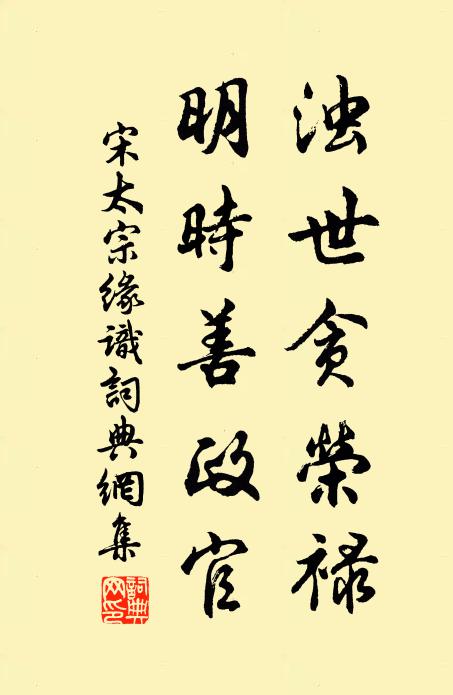 浊世贪荣禄
明時善政官
宋太宗緣識詞典網集
詞典网印